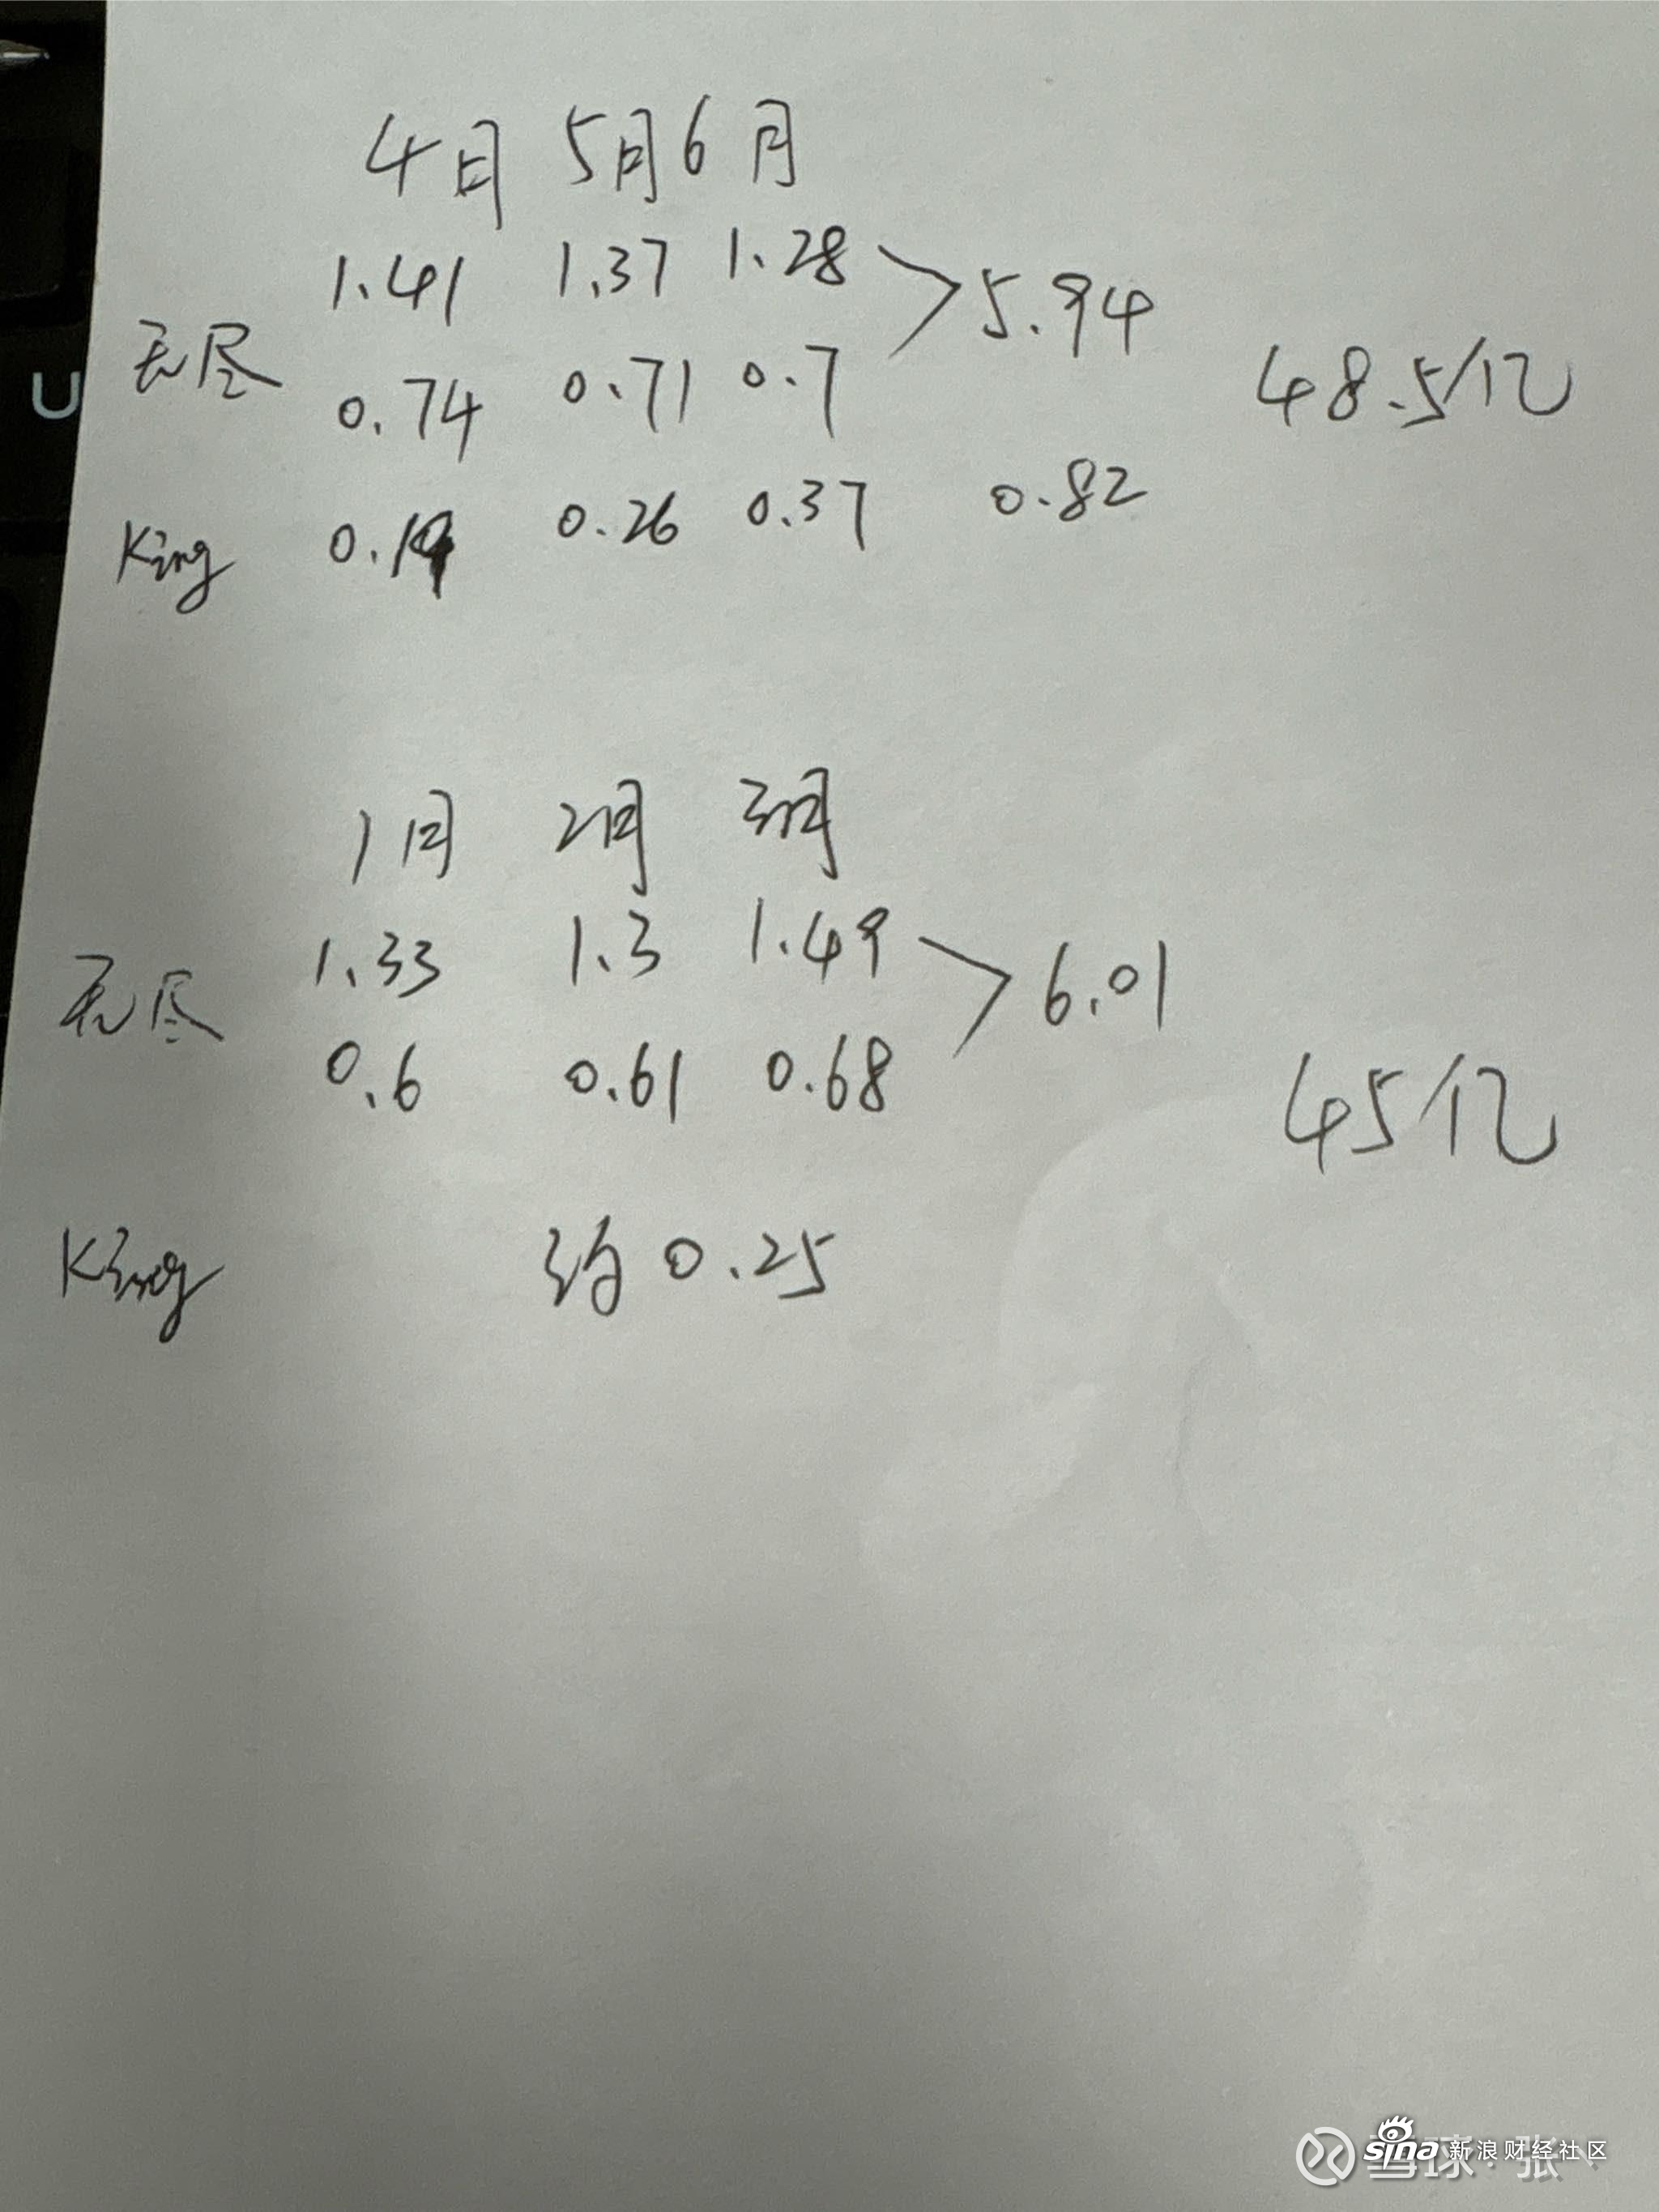 4月 5月 6月
1.41 1.37 1.28
无尽 5.94
0.74 0.71 0.7
48.5亿
King 0.19 0.26 0.37 0.82
1月 2月 3月
1.33 1.3 1.49
无尽 6.01
0.6 0.61 0.68
45亿
King 约0.25
U
sina 新浪财经社区
雪球:张